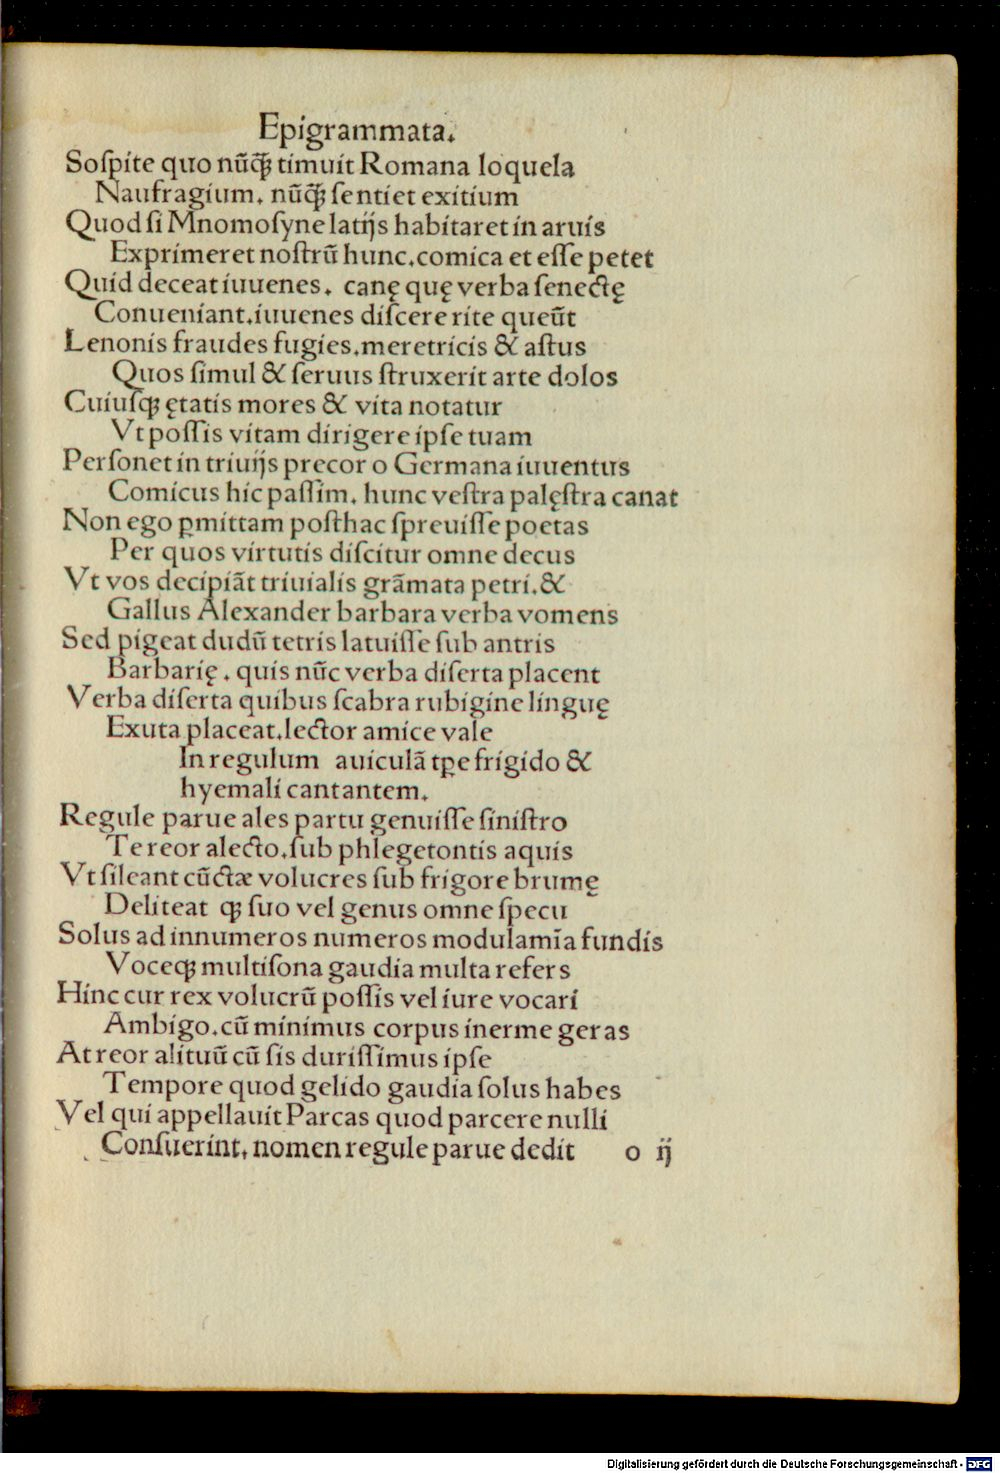 Epigrammata.
Soſpite quo nūq̃ꝫ timuit Romana loquela
Naufragium. nūq̃ꝫ ſentiet exitium
Quod ſi Mnomoſyne latijs habitaret in aruis
Exprimeret noſtrū hunc. comica et eſſe petet
Quid deceat iuuenes. canę quę verba ſenectę
Conueniant. iuuenes diſcere rite queūt
Lenonis fraudes fugies. meretricis & aſtus
Quos ſimul & ſeruus ſtruxerit arte dolos
Cuiuſqꝫ ętatis mores & vita notatur
Vt poſſis vitam dirigere ipſe tuam
Perſonet in triuijs precor o Germana iuuentus
Comicus hic paſſim. hunc veſtra palęſtra canat
Non ego ꝑmittam poſthac ſpreuiſſe poetas
Per quos virtutis diſcitur omne decus
Vt vos decipiāt triuialis grāmata petri. &
Gallus Alexander barbara verba vomens
Sed pigeat dudū tetris latuiſſe ſub antris
Barbarię. quis nūc verba diſerta placent
Verba diſerta quibus ſcabra rubigine linguę
Exuta placeat. lector amice vale
In regulum auiculā tꝑe frigido &
hyemali cantantem.
Regule parue ales partu genuiſſe ſiniſtro
Te reor alecto. ſub phlegetontis aquis
Vt ſileant cūctæ volucres ſub frigore brumę
Deliteat qꝫ ſuo vel genus omne ſpecu
Solus ad innumeros numeros modulamīa fundis
Voceqꝫ multiſona gaudia multa refers
Hinc cur rex volucrū poſſis vel iure vocari
Ambigo. cū minimus corpus inerme geras
At reor alituū cū ſis duriſſimus ipſe
Tempore quod gelido gaudia ſolus habes
Vel qui appellauit Parcas quod parcere nulli
Conſuerint, nomen regule parue dedit o ij
Digitalisierung gefördert durch die Deutsche Forschungsgemeinschaft - DFG